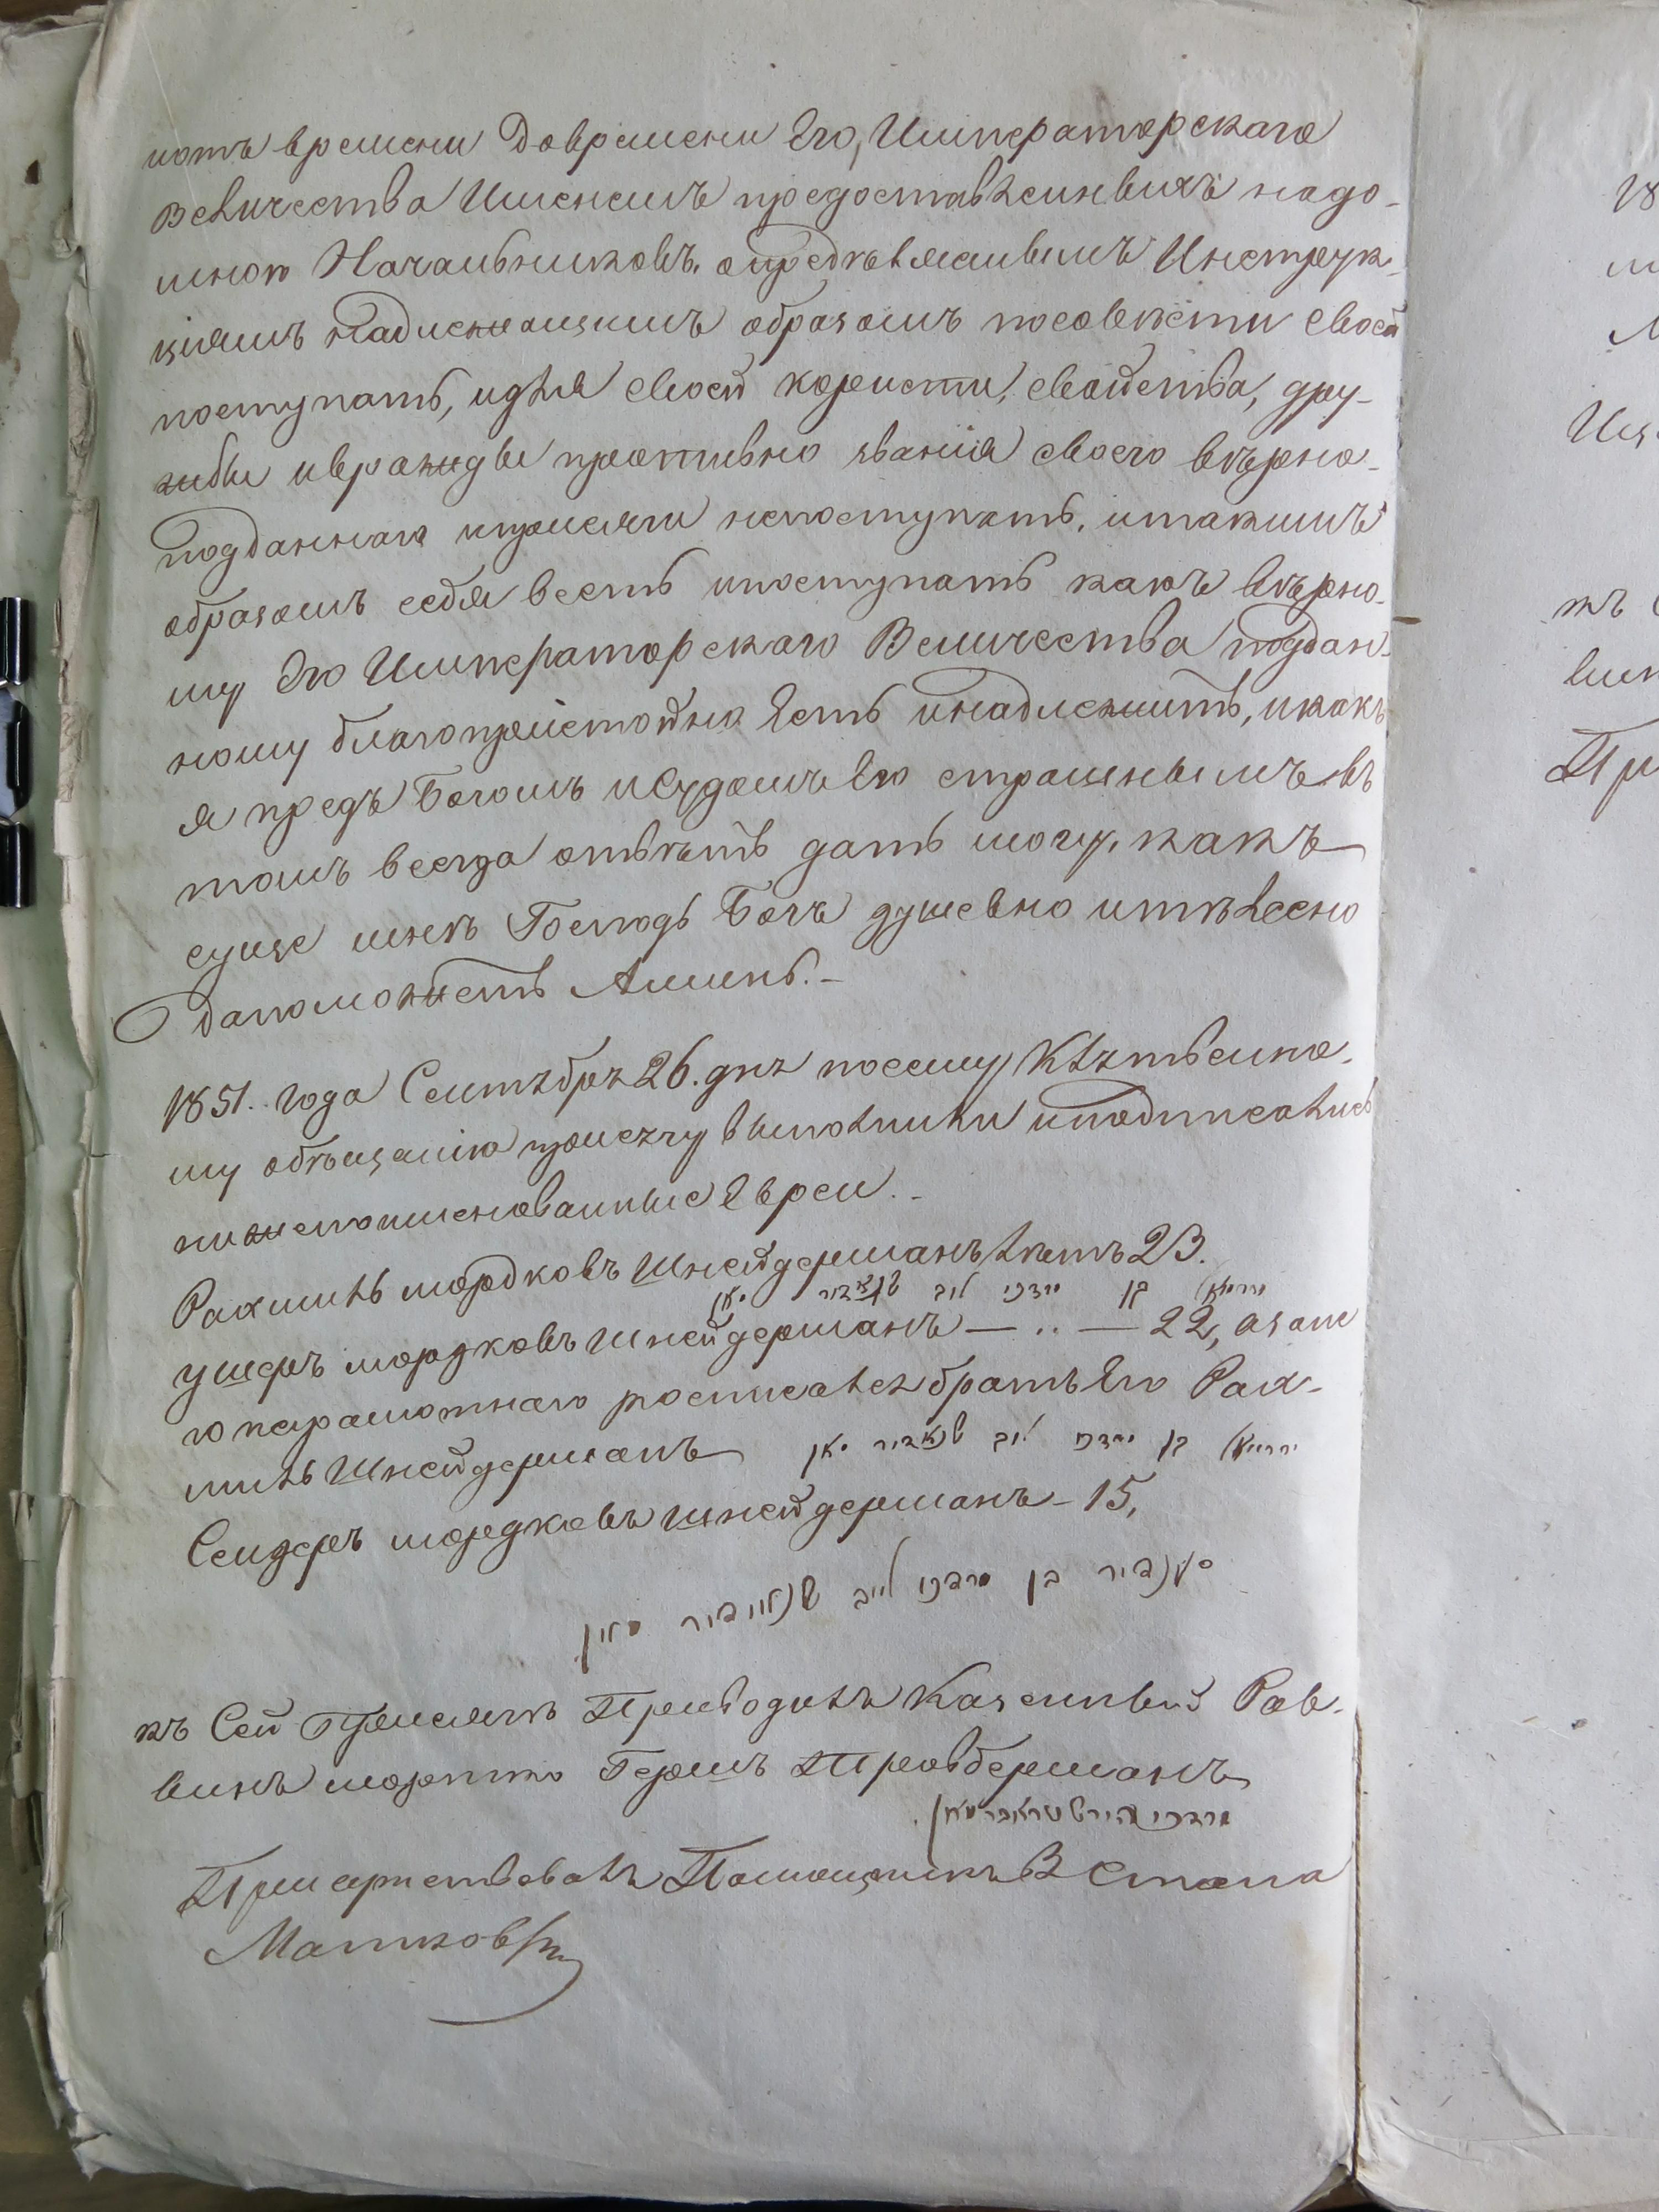 иотъ времени довремени Его, Императорскаго
Величества Именемъ предоставленныхъ надо-
мною Начальниковъ, определяемымъ Инструк-
циямъ надлежащимъ образомъ посовести своей
поступать, идля своей корысти, свойства, дру-
жбы ивражды противно звания своего верно-
подданнаго иприсяги непоступать, итакимъ
образомъ себя весть ипоступать какъ верно-
му Его Императорскаго Величества поддан-
ному благопристойно Есть инадлежитъ, икакъ
я предъ Богомъ иСудомъ Его страшнымъ въ
томъ всегда ответъ дать могу, какъ
суще мне Господь Богъ душевно ителесно
дапоможетъ Аминь.-
1851. года Сентября 26. дня посему Клятвенно-
му обещанию присягу выполнили иподписались
нижепоименованные Евреи.-
Рахмиль мордковъ Шнейдерманъ летъ 23.
ירחמיאל בן מרדכי ליב שניידער מאן
ушеръ мордковъ Шнейдерманъ — .. — 22, азане
го неграмотнаго росписался братъ Его Рах-
миль Шнейдерманъ ירחמיאל בן מרדכי ליב שניידער מאן
Сендеръ мордковъ Шнейдерманъ - 15,
סענדיר בן מרדכי לייב שניידיר מאן
къ Сей Присяге Приводилъ Казенный Рав-
винъ мортко Гершъ
מרדכי הירש
Присутствовалъ Помощникъ 3 Стана